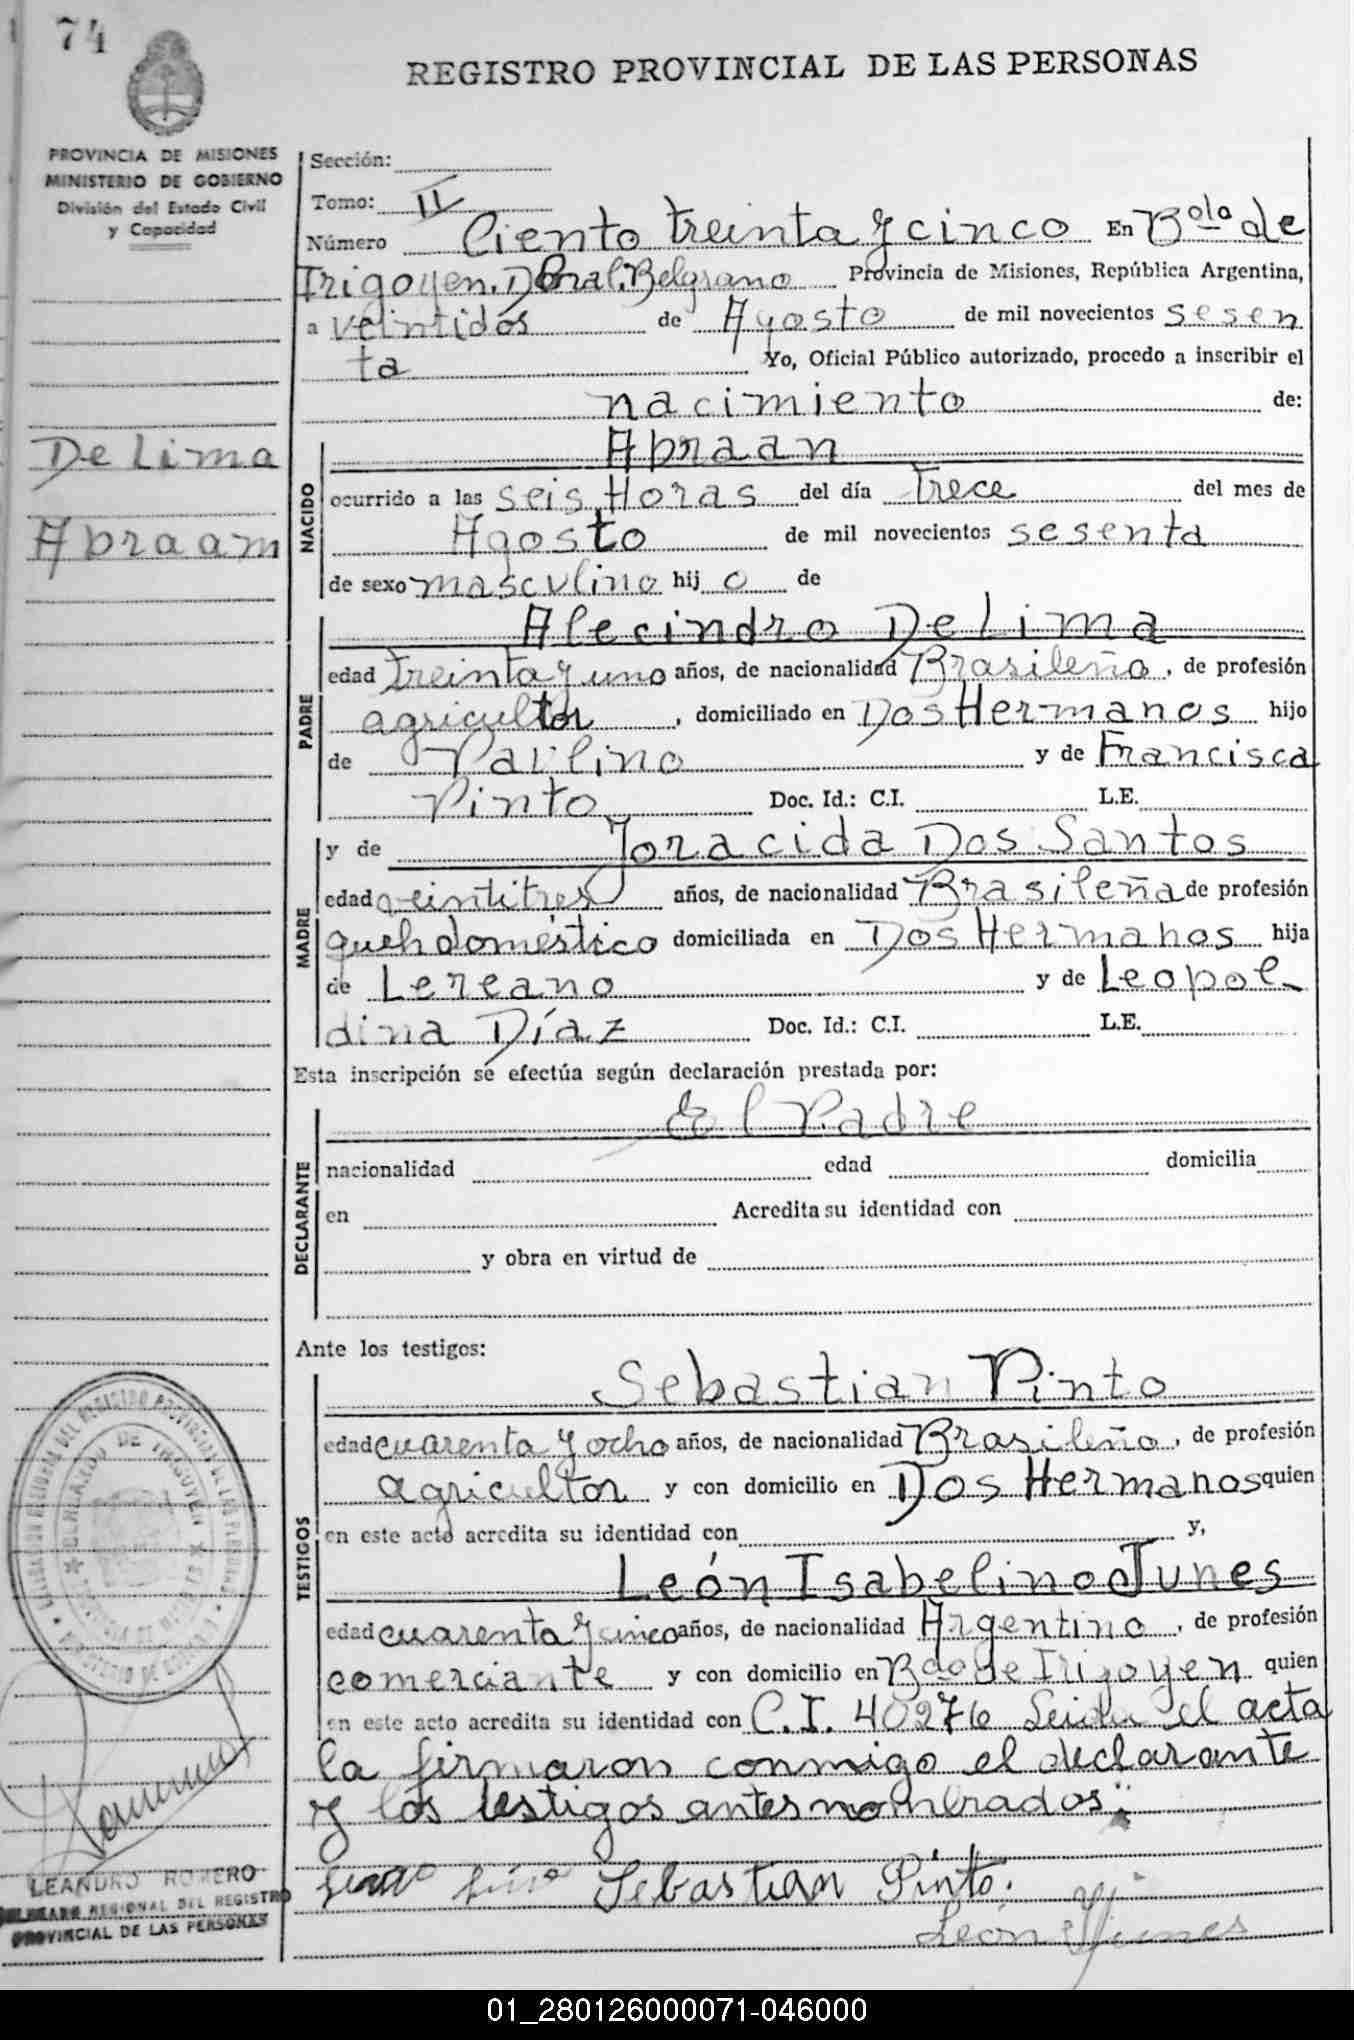 74
REGISTRO PROVINCIAL DE LAS PERSONAS
PROVINCIA DE MISIONES
MINISTERIO DE GOBIERNO
División del Estado Civil
y Capacidad
Sección:
Tomo: II
Número Ciento treinta y cinco En B.ºdo de
Irigoyen. Dpto. Gral. Belgrano Provincia de Misiones, República Argentina,
a veintidós de Agosto de mil novecientos sesen
ta Yo, Oficial Público autorizado, procedo a inscribir el
nacimiento de:
De Lima
Abraam
NACIDO
Abraan
ocurrido a las seis Horas del día trece del mes de
Agosto de mil novecientos sesenta
de sexo masculino hij o de
PADRE
Alecindro De Lima
edad treinta y uno años, de nacionalidad Brasileño, de profesión
agricultor, domiciliado en Dos Hermanos hijo
de Paulino y de Francisca
Pinto Doc. Id.: C.I. L.E.
MADRE
y de Joracida Dos Santos
edad veintitres años, de nacionalidad Brasileña de profesión
queh doméstico domiciliada en Dos Hermanos hija
de Lereano y de Leopol-
dina Díaz Doc. Id.: C.I. L.E.
Esta inscripción se efectúa según declaración prestada por:
DECLARANTE
El Padre
nacionalidad edad domicilia
en Acredita su identidad con
y obra en virtud de
Ante los testigos:
TESTIGOS
Sebastian Pinto
edad cuarenta y ocho años, de nacionalidad Brasileño, de profesión
agricultor y con domicilio en Dos Hermanos quien
en este acto acredita su identidad con y,
León Isabelino Junes
edad cuarenta y cinco años, de nacionalidad Argentino, de profesión
comerciante y con domicilio en Bdo de Irigoyen quien
en este acto acredita su identidad con C.I. 40276 Leida el acta
la firmaron conmigo el declarante
y los testigos antes nombrados.
Sebastian Pinto.
León Junes
LEANDRO ROMERO
DELEGADO REGIONAL DEL REGISTRO
PROVINCIAL DE LAS PERSONAS
01_280126000071-046000